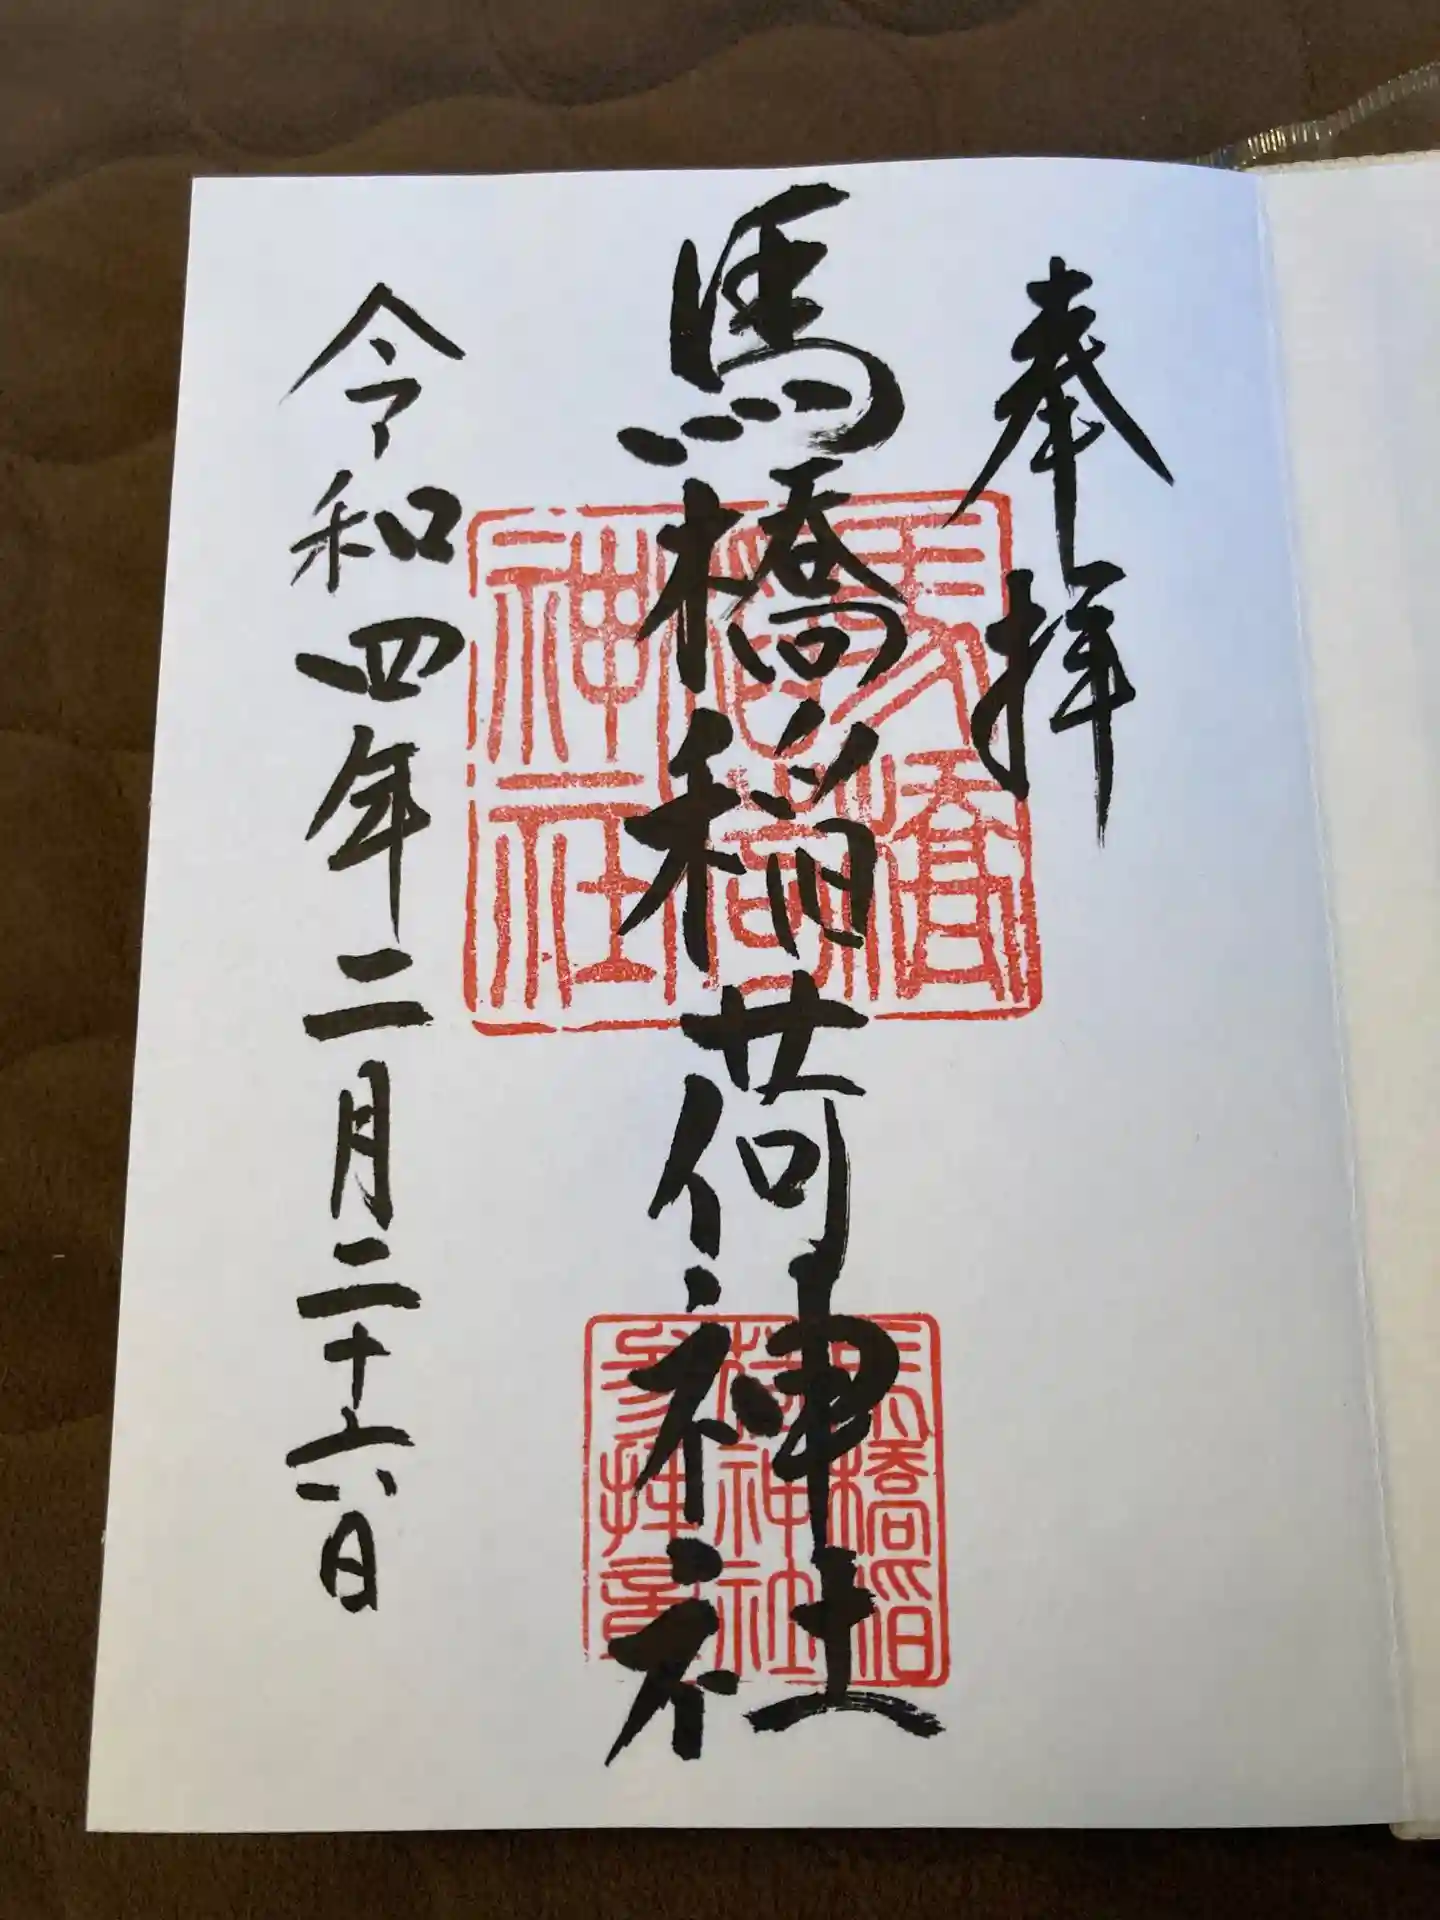 奉拝
馬橋稲荷神社
令和四年二月二十六日
馬橋
稲荷
神社
馬橋稲
荷神社
参拝章